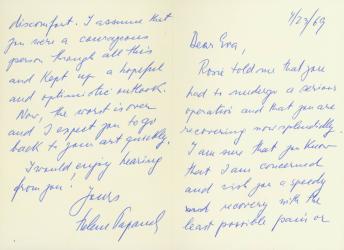 4/23/69
Dear Eva,
Rosie told me that you
had to undergo a serious
operation and that you are
recovering now splendidly.
I am sure that you know
that I am concerned
and wish you a speedy
and recovery with the
least possible pain or
discomfort. I assume that
you were a courageous
person through all this
and kept up a hopeful
and optimistic outlook.
Now, the worst is over
and I expect you to go
back to your art quickly.
I would enjoy hearing
from you!
Yours
Helene Papanek